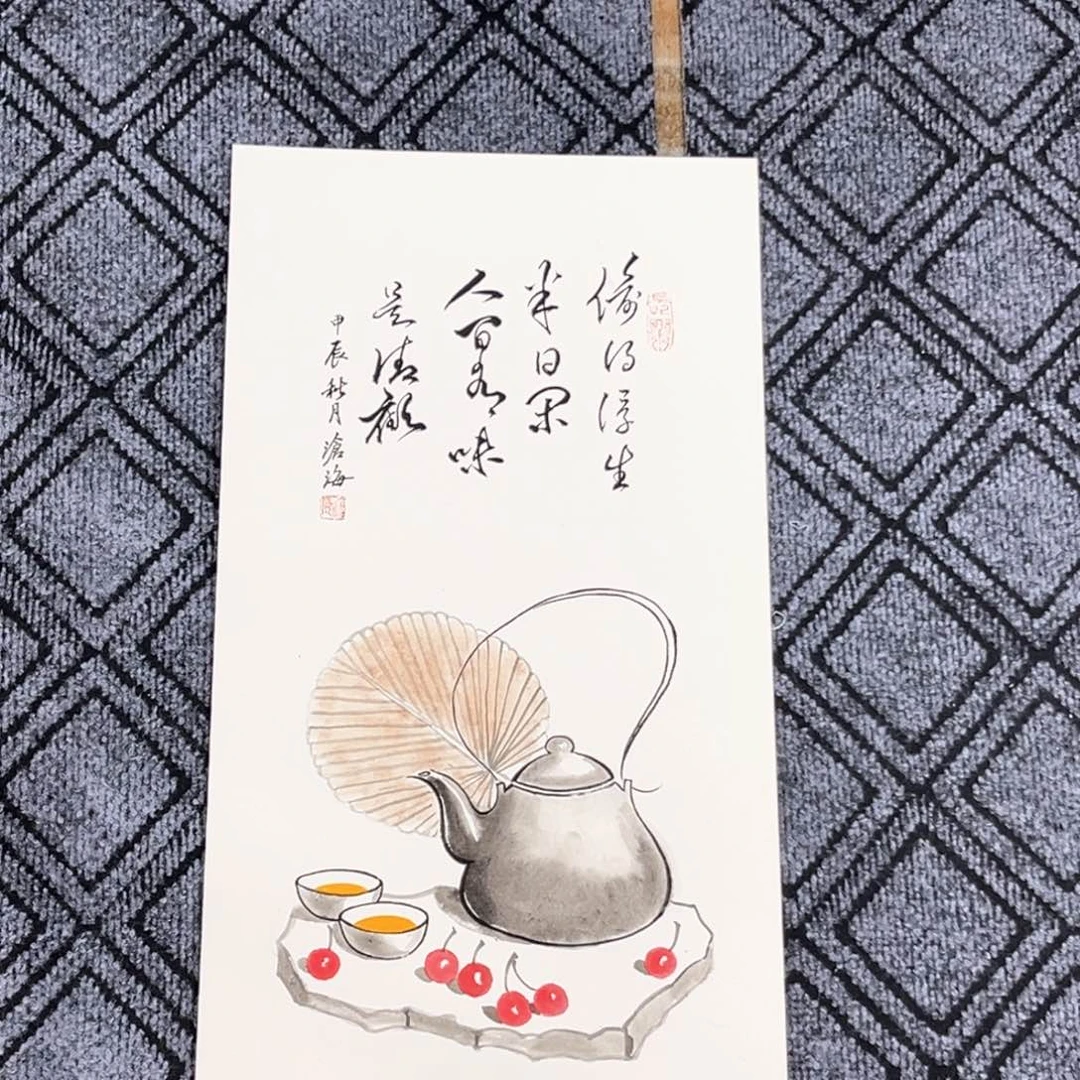 偷得浮生
半日闲
人间有味
是清歡
甲辰秋月滄海